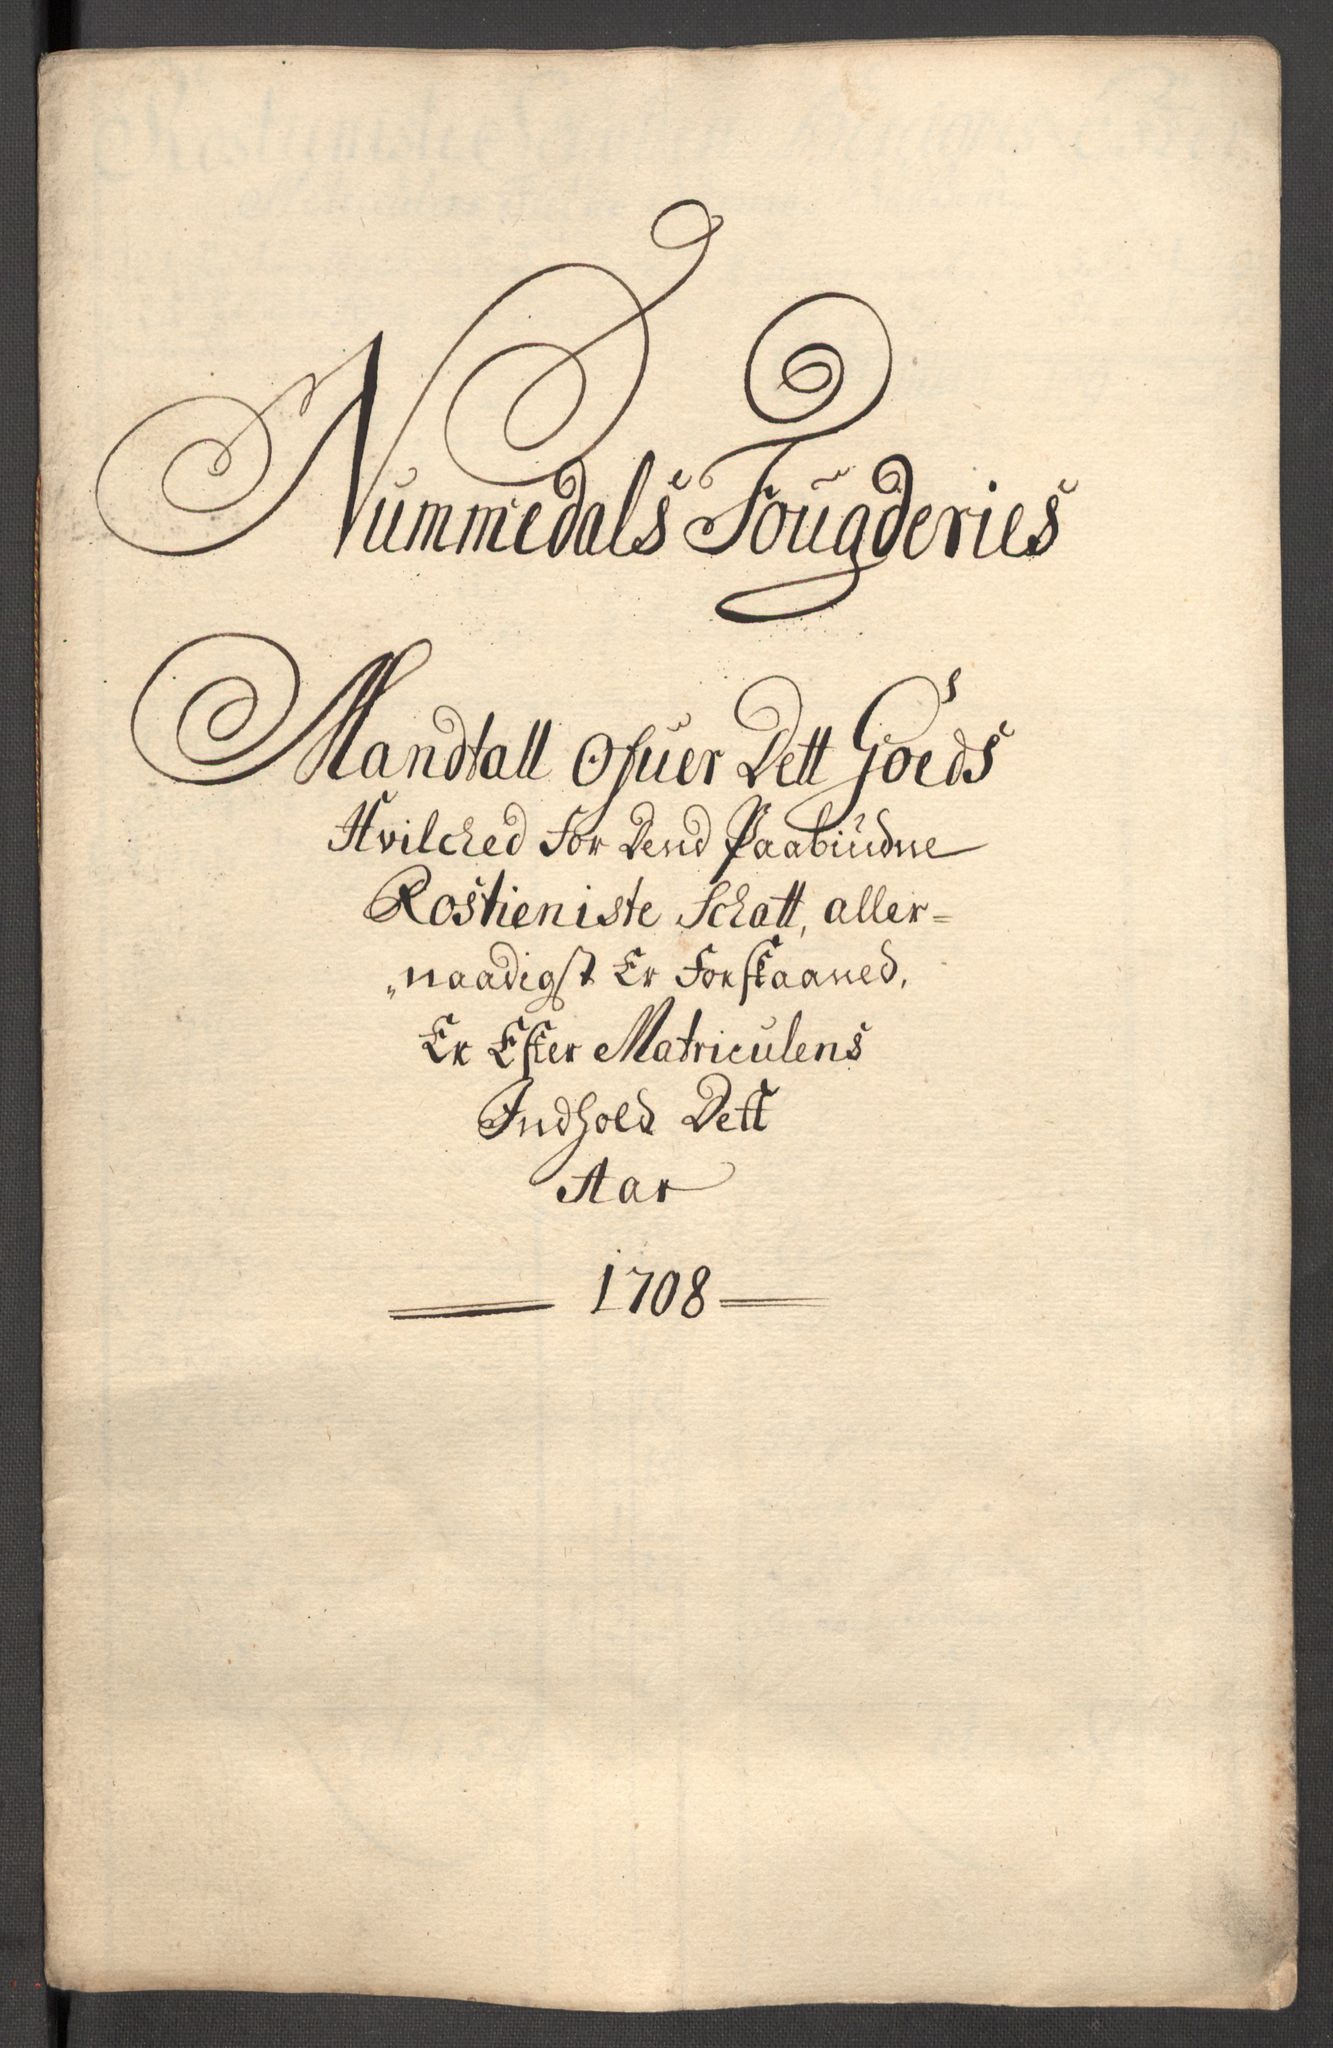 Nummedals Fougderies
Mandtall Ofuer Dett Goeds
Hvilched For Dend Paabiudne
Rostieniste Schatt, aller=
„naadigst Er Forskaaned,
Er Efter Matriculens
Indhold Dett
Aar
1708